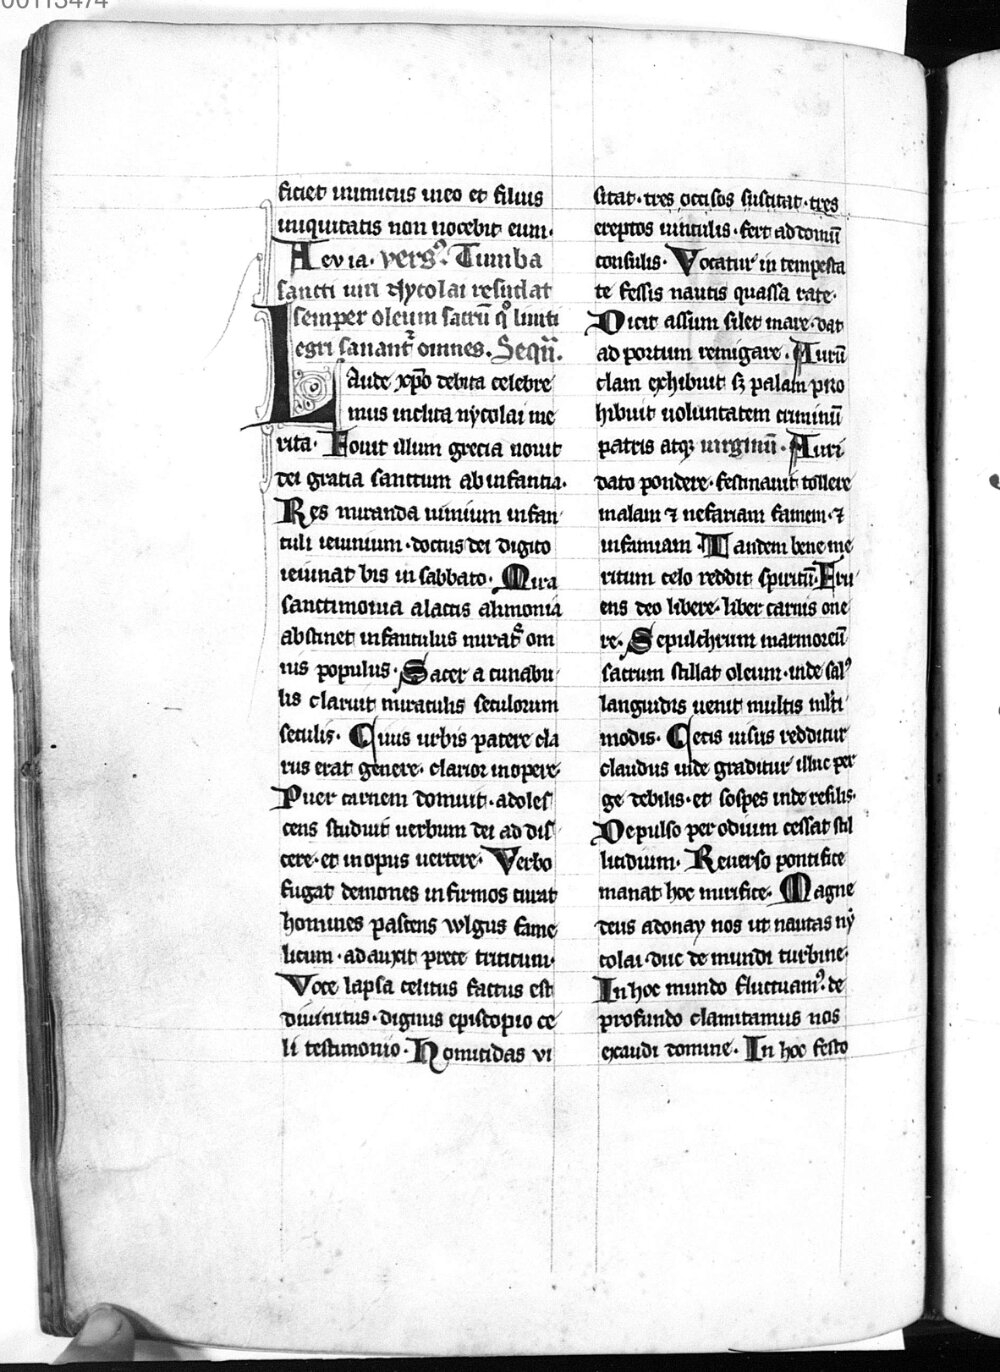 00113474
ficiet inimicus meo et filius
iniquitatis non nocebit eum.
Aevia. versꝰ. Tumba
sancti viri Nycolai resudat
semper oleum sacrū qͦ liniti
egri sanant᷑ omnes. Seqū.
Laude xp̄o debita celebre
mus inclita nycolai me
rita. Fouit illum grecia nouit
dei gratia sanctum ab infantia.
Res miranda nimium infan
tuli ieiunium. doctus dei digito
ieiunat bis in sabbato. Mira
sanctimonia a lactis alimonia
abstinet infantulus mirat᷑ om
nis populus. Sacer a cunabu
lis claruit miraculis seculorum
seculis. Cuius urbis patere cla
rus erat genere. clarior in opere.
Puer carnem domuit. adoles
cens studuit uerbum dei ad dis
cere. et in opus uertere. Verbo
fugat demones infirmos curat
homines pascens wlgus fame
licum. ad auxit prece triticum.
Voce lapsa celitus factus est
diuinitus. dignus episcopio ce
li testimonio. Homicidas vi
sitat. tres occisos suscitat. tres
ereptos uinculis. fert ad domū
consulis. Vocatur in tempesta
te fessis nautis quassa rate.
Dicit assum silet mare. dat
ad portum remigare. Aurū
clam exhibuit sꝫ palam pro
hibuit uoluntatem criminū
patris atqꝫ uirginū. Auri
dato pondere. festinauit tollere
malam ⁊ nefariam famem. ⁊
infamiam. Tandem bene me
ritum celo reddit spiritū. Fru
ens deo libere. liber carnis one
re. Sepulchrum marmoreū
sacrum stillat oleum. inde salꝰ
languidis uenit multis ml̄ti
modis. Cecis uisus redditur
claudus inde graditur illuc per
ge debilis. et sospes inde resilis.
Depulso per odium cessat stil
licidium. Reuerso pontifice
manat hoc mirifice. Magne
deus adonay nos ut nautas ny
colai duc de mundi turbine.
In hoc mundo fluctuamꝰ. de
profundo clamitamus nos
exaudi domine. In hoc festo